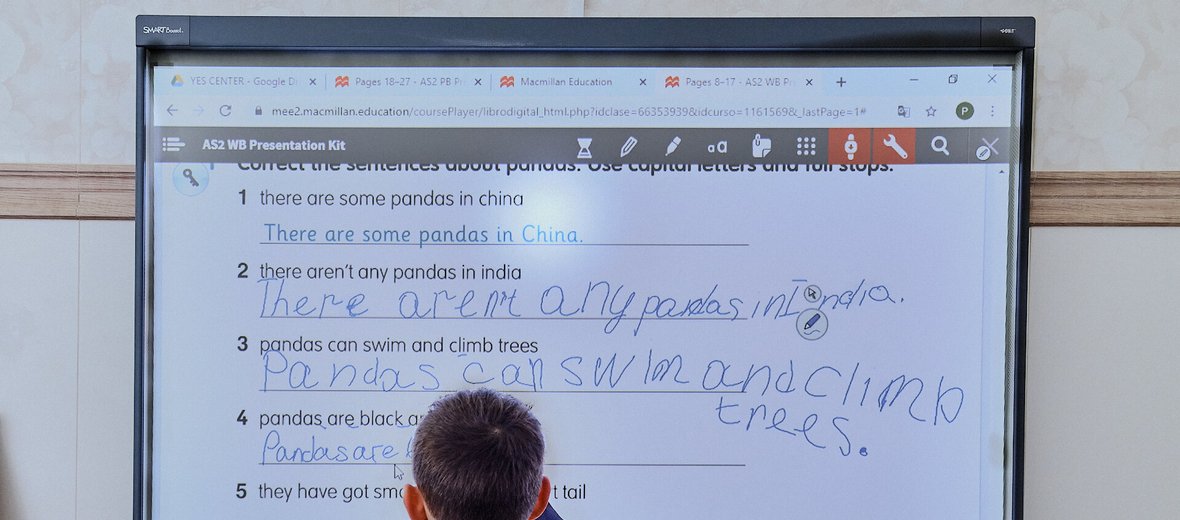 SMART Board.
YES CENTER - Google Di
Pages 18-27 - AS2 PB Pr
Macmillan Education
Pages 8-17 - AS2 WB Pr
mee2.macmillan.education/coursePlayer/librodigital_html.php?idclase=66353939&idcurso=1161569&_lastPage=1#
P
AS2 WB Presentation Kit
aA
Correct the sentences about pandas. Use capital letters and full stops.
1 there are some pandas in china
There are some pandas in China.
2 there aren't any pandas in india
There aren't any pandas in India.
3 pandas can swim and climb trees
Pandas can swim and climb
trees.
4 pandas are black
Pandas are
5 they have got tail